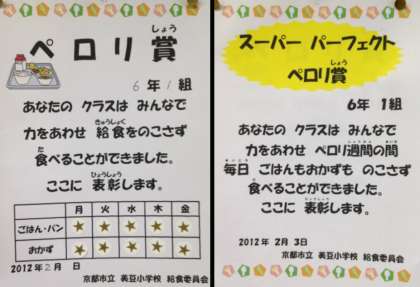 ペロリ賞
しょう
6年1組
あなたの クラスは みんなで
力をあわせ 給食をのこさず
きゅうしょく
食べることができました。
た
ここに 表彰します。
ひょうしょう
月 火 水 木 金
ごはん・パン ★ ★ ★ ★ ★
おかず ★ ★ ★ ★ ★
2012年2月 日
京都市立 美豆小学校 給食委員会
スーパー パーフェクト
ペロリ賞
しょう
6年 1組
あなたの クラスは みんなで
力をあわせ ペロリ週間の間
毎日 ごはんもおかずも のこさず
食べることができました。
ここに 表彰します。
2012年 2月 3日
京都市立 美豆小学校 給食委員会